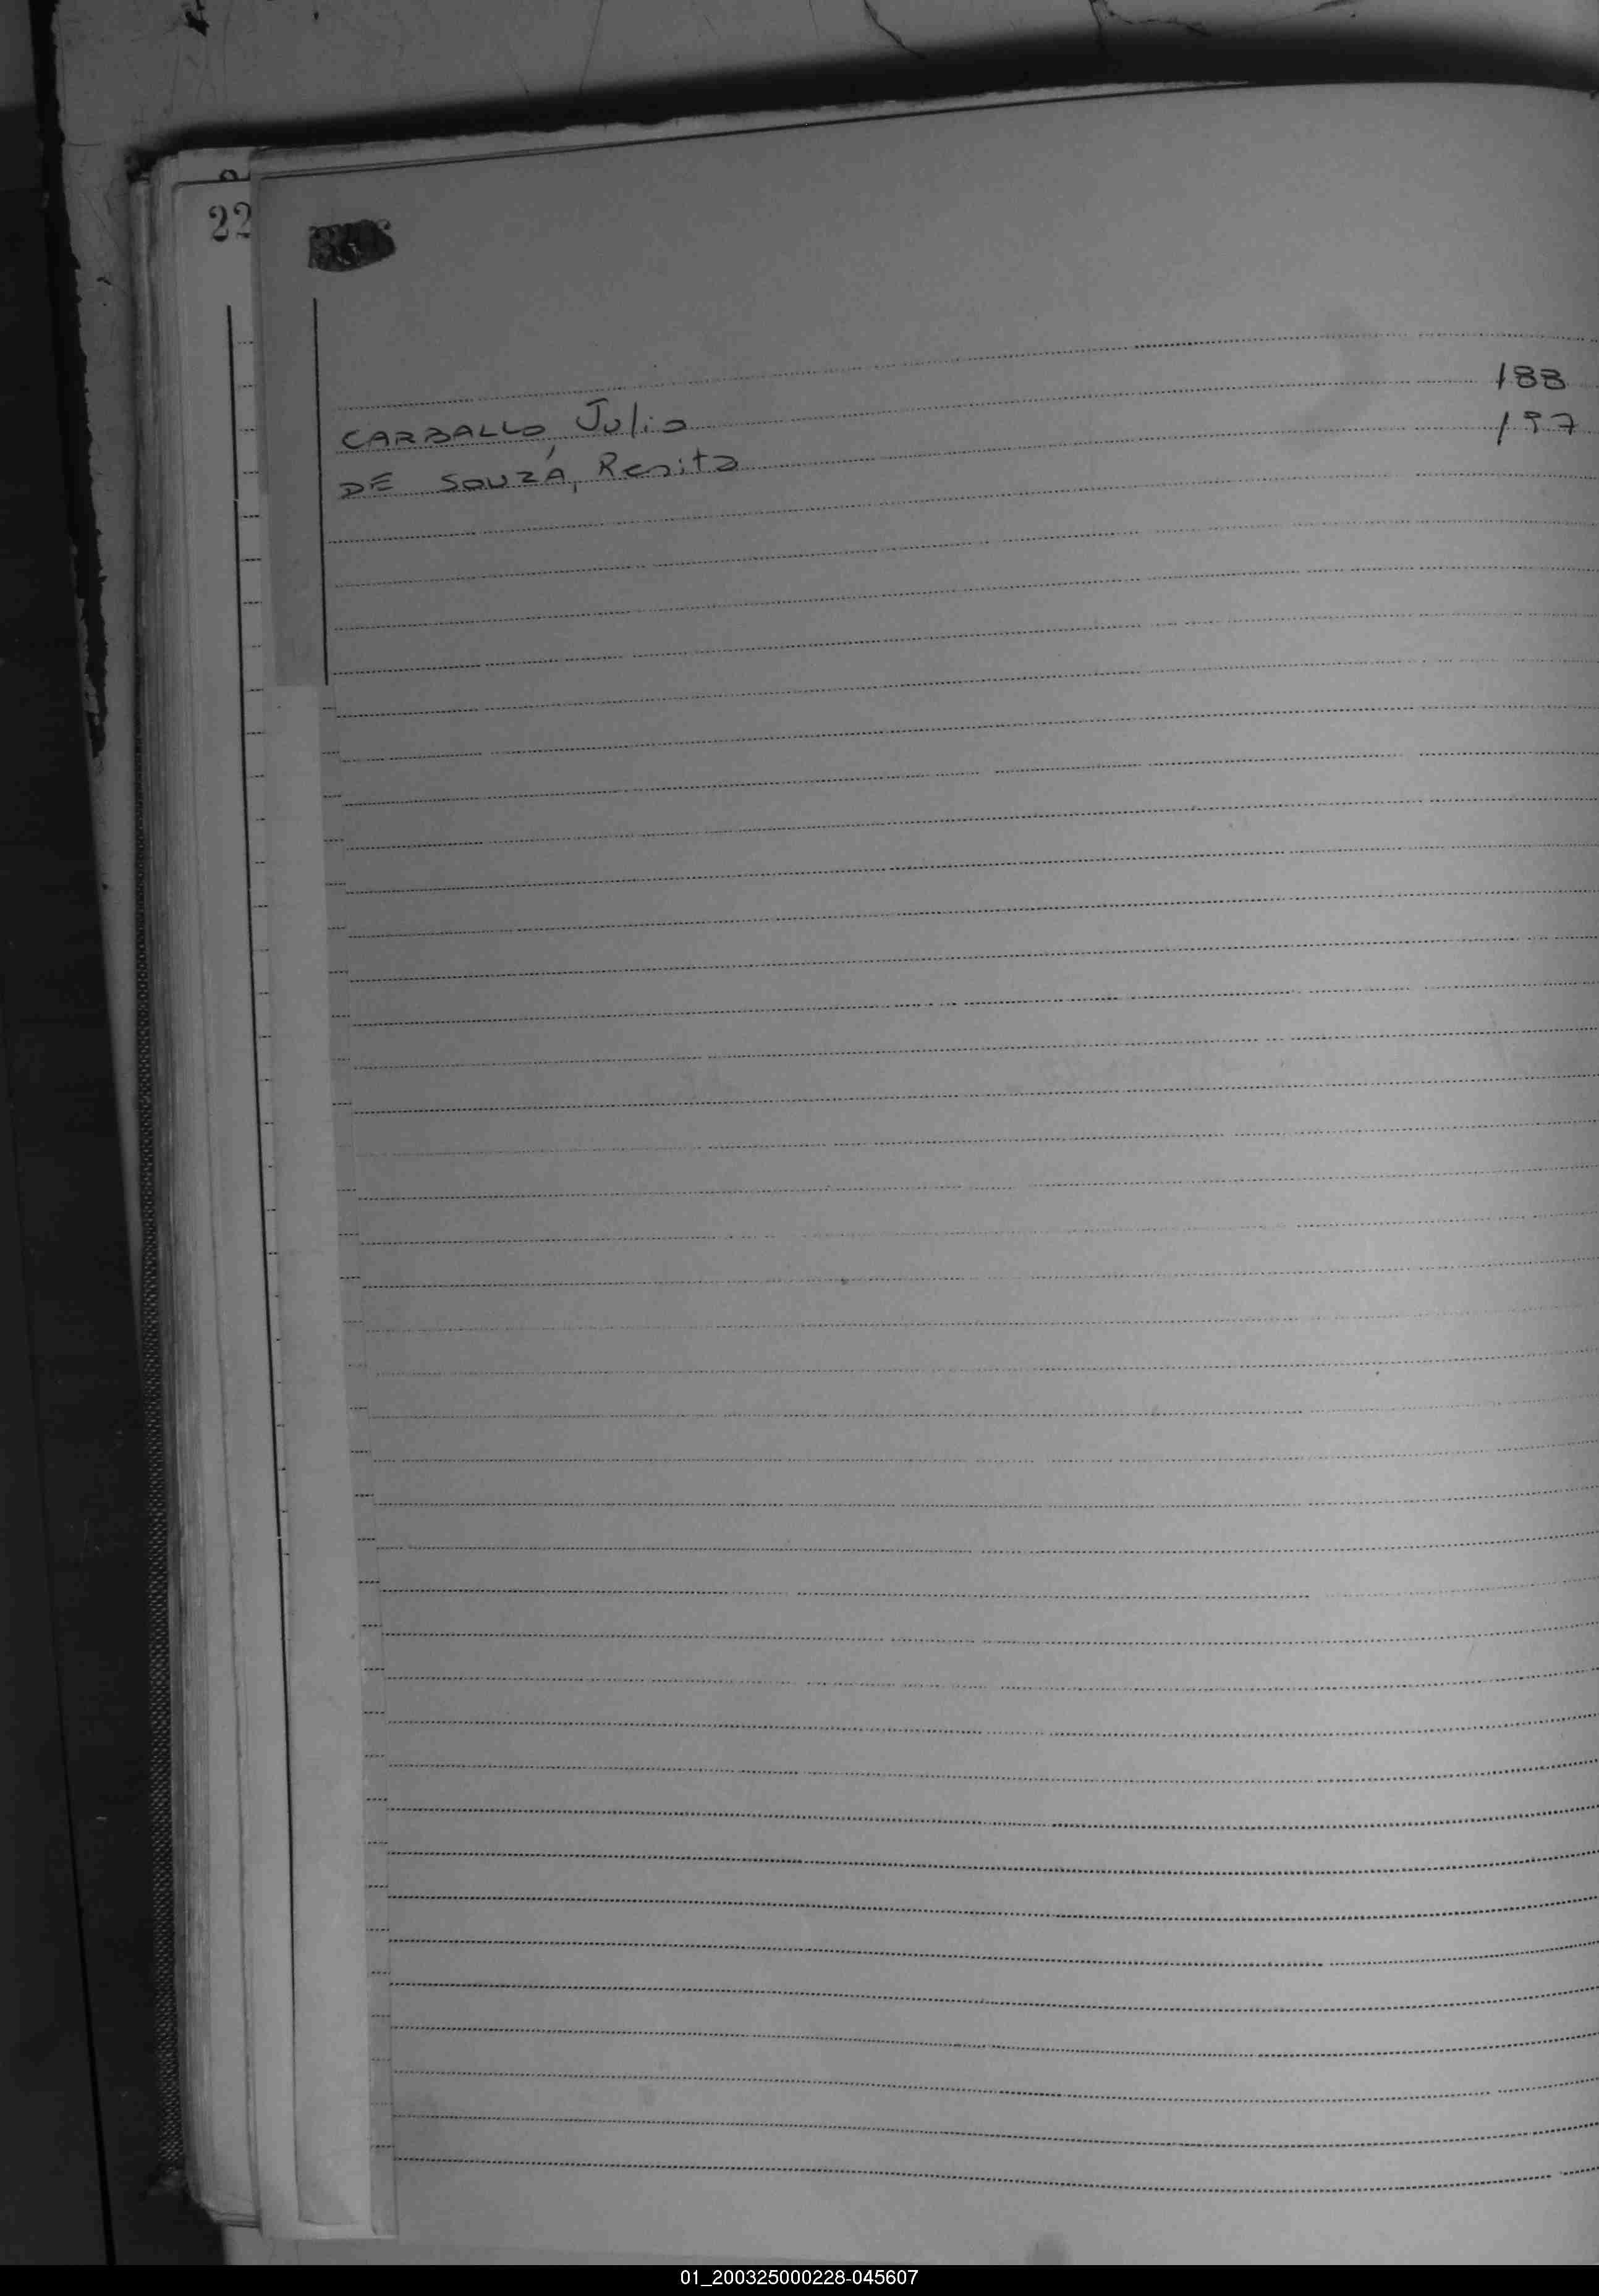 22
CARBALLO, Julio 188
DE SOUZA, Renita 197
01_200325000228-045607